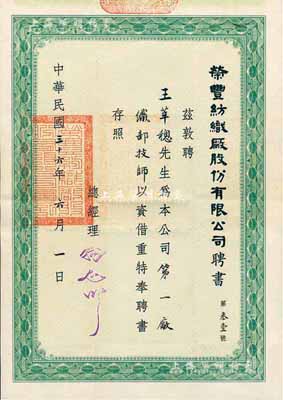 榮豐紡織廠股份有限公司聘書
第叁壹號
茲敦聘
王革穗先生為本公司第一廠
纖部技師以資借重特奉聘書
存照
總經理
中華民國三十六年六月一日